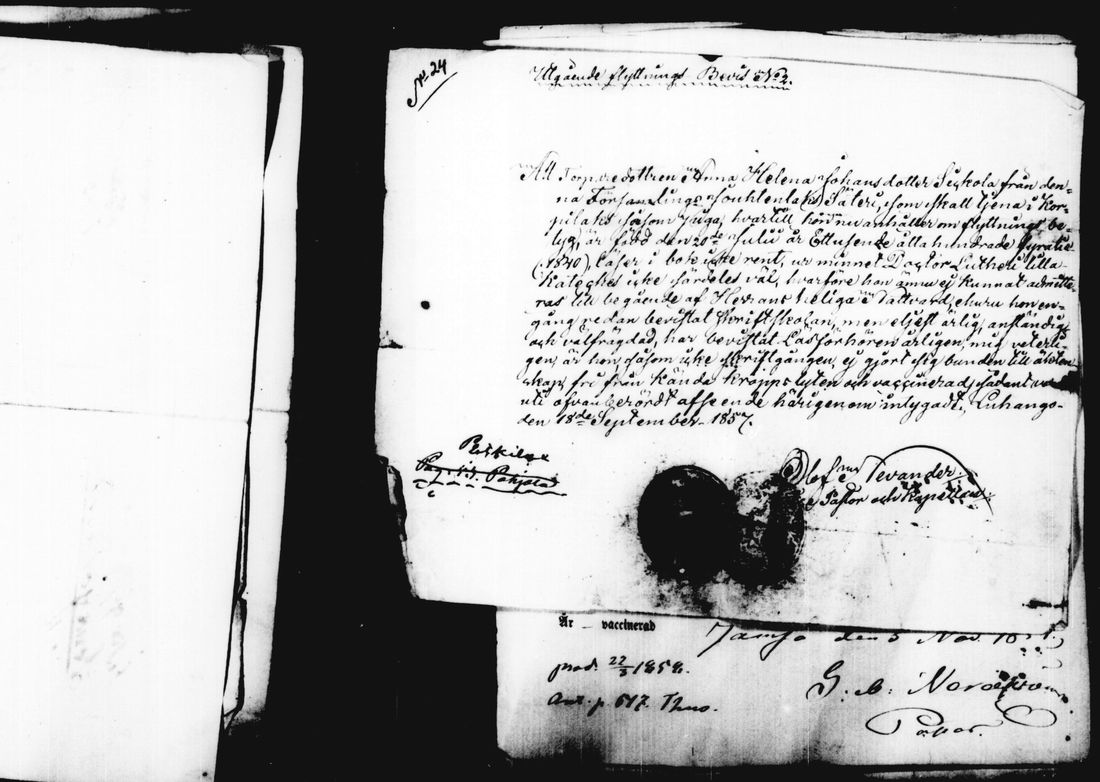 No. 24
Utgående flyttnings-Bevis No 2.
Att Torparedottren Anna Helena Johansdotter Siskola från den-
na Församlings Säteri, som skall tjena i Kor-
pilaks såsom piga, hvartill hon nu anhåller om flyttnings be-
tyg, är född den 20de Julii år Ettusende åtta hundrade fyratio
(1840), läser i bok icke rent, ur minnet Doctor Lutheri lilla
Kateches icke särdeles väl, hvarföre hon ännu ej kunnat admitte-
ras till begående af Herrans heliga Nattvard, ehuru hon en-
gång redan bevistat Skriftskolan, men eljest ärlig, anständig
och välfrägdad, har bevistat Läsförhören årligen, mig veterli-
gen, är hon, såsom icke skriftgången, ej gjort sig bunden till äkten-
skap, fri från kända kroppslyten och vaccinerad, sådant
uti ofvanberördt afseende härigenom intygadt. Luhango
den 18de September 1857.
Olof Tevander
Pastor och Kapellan
Pag. Pohjola
Är – vaccinerad
Jämsä den 5 Nov.
prod. 22/3 1858.
Ant. p 617. Thno.
G. A.
Pastor.